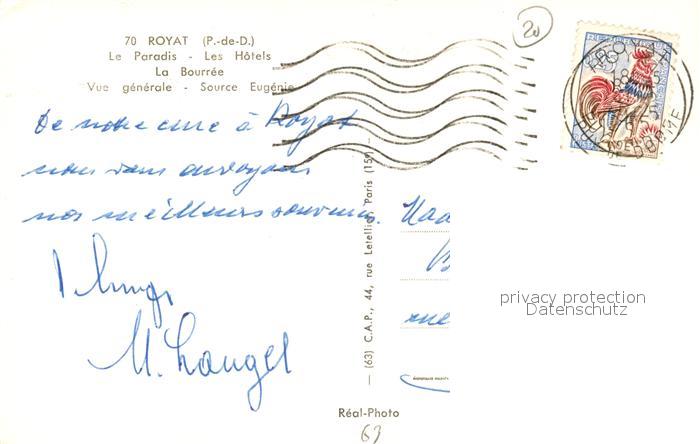 70 ROYAT (P.-de-D.)
Le Paradis - Les Hôtels
La Bourrée
Vue générale - Source Eugénie
De notre cure à Royat
nous vous envoyons
nos meilleurs souvenirs.
(63) C.A.P., 44, rue Letellier, Paris (15e)
20
ROYAT
DE DOME
privacy protection
Datenschutz
Réal-Photo
63